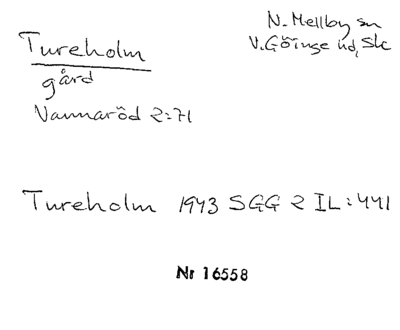 N. Mellby sn
V. Göinge hd, Skc
Tureholm
gård
Vannaröd 2:71
Tureholm 1943 SGG 2 IL:441
Nr 16558